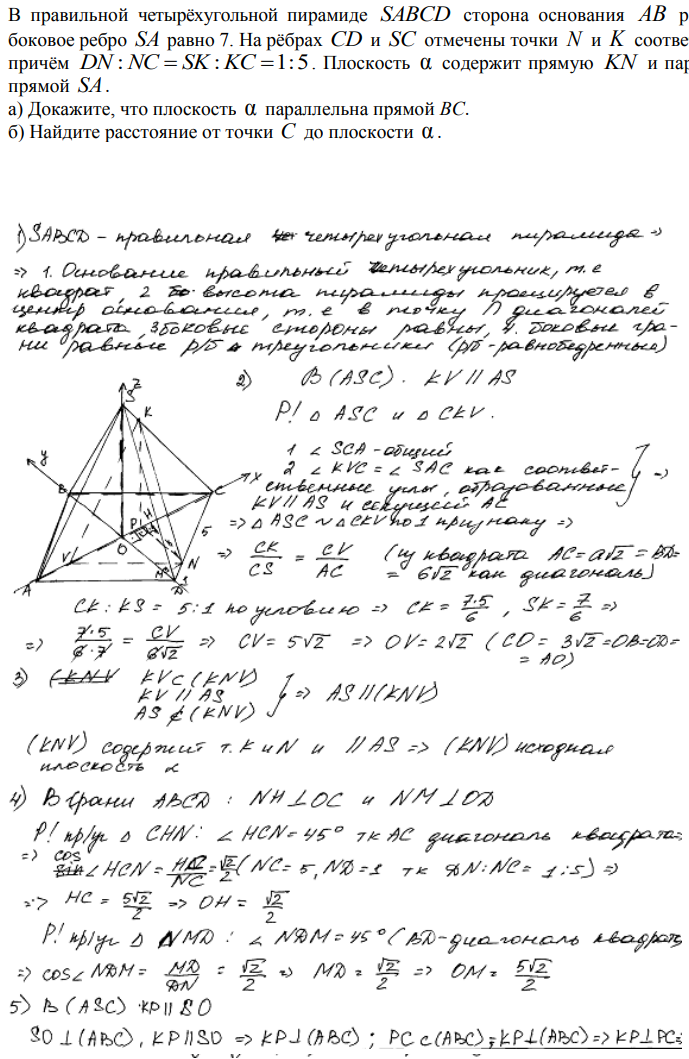 В правильной четырёхугольной пирамиде SABCD сторона основания AB р
боковое ребро SA равно 7. На рёбрах CD и SC отмечены точки N и K соотве
причём DN : NC = SK : KC = 1 : 5. Плоскость α содержит прямую KN и пар
прямой SA.
а) Докажите, что плоскость α параллельна прямой BC.
б) Найдите расстояние от точки C до плоскости α.
1) SABCD – правильная четырехугольная пирамида =>
=> 1. Основание правильный четырехугольник, т.е
квадрат, 2 высота пирамиды проецируется в
центр основания, т.е в точку ∩ диагоналей
квадрата, 3 боковые стороны равны, 4. боковые гра-
ни равные р/б треугольники (р/б - равнобедренные)
2) В (ASC). KV // AS
Р! △ ASC и △ CKV.
1 ∠ SCA - общий
2 ∠ KVC = ∠ SAC как соответ-
ственные углы, образованные
KV // AS и секущей AC
=>
=> △ ASC ~ △ CKV по 1 признаку =>
=> CK/CS = CV/AC (из квадрата AC = a√2 = BD =
= 6√2 как диагональ)
z
S
K
y
B
C
x
H
P
5
O
V
N
M
A
D
1
CK : KS = 5 : 1 по условию => CK = 7·5/6, SK = 7/6 =>
=> 7·5/6·7 = CV/6√2 => CV = 5√2 => OV = 2√2 (CO = 3√2 = OB = OD =
= AO)
3) KV ⊂ (KNV)
KV // AS
AS ⊄ (KNV)
=> AS // (KNV)
(KNV) содержит т. K и N и // AS => (KNV) исходная
плоскость α
4) В грани ABCD : NH ⊥ OC и NM ⊥ OD
Р! пр/уг △ CHN : ∠ HCN = 45° тк AC диагональ квадрата =>
=> cos ∠ HCN = HC/NC = √2/2 (NC = 5, ND = 1 тк DN : NC = 1 : 5) =>
=> HC = 5√2/2 => OH = √2/2
Р! пр/уг △ NMD : ∠ NDM = 45° (BD - диагональ квадрата)
=> cos ∠ NDM = MD/DN = √2/2 => MD = √2/2 => OM = 5√2/2
5) В (ASC) KP // SO
SO ⊥ (ABC), KP // SO => KP ⊥ (ABC) ; PC ⊂ (ABC) ; KP ⊥ (ABC) => KP ⊥ PC =